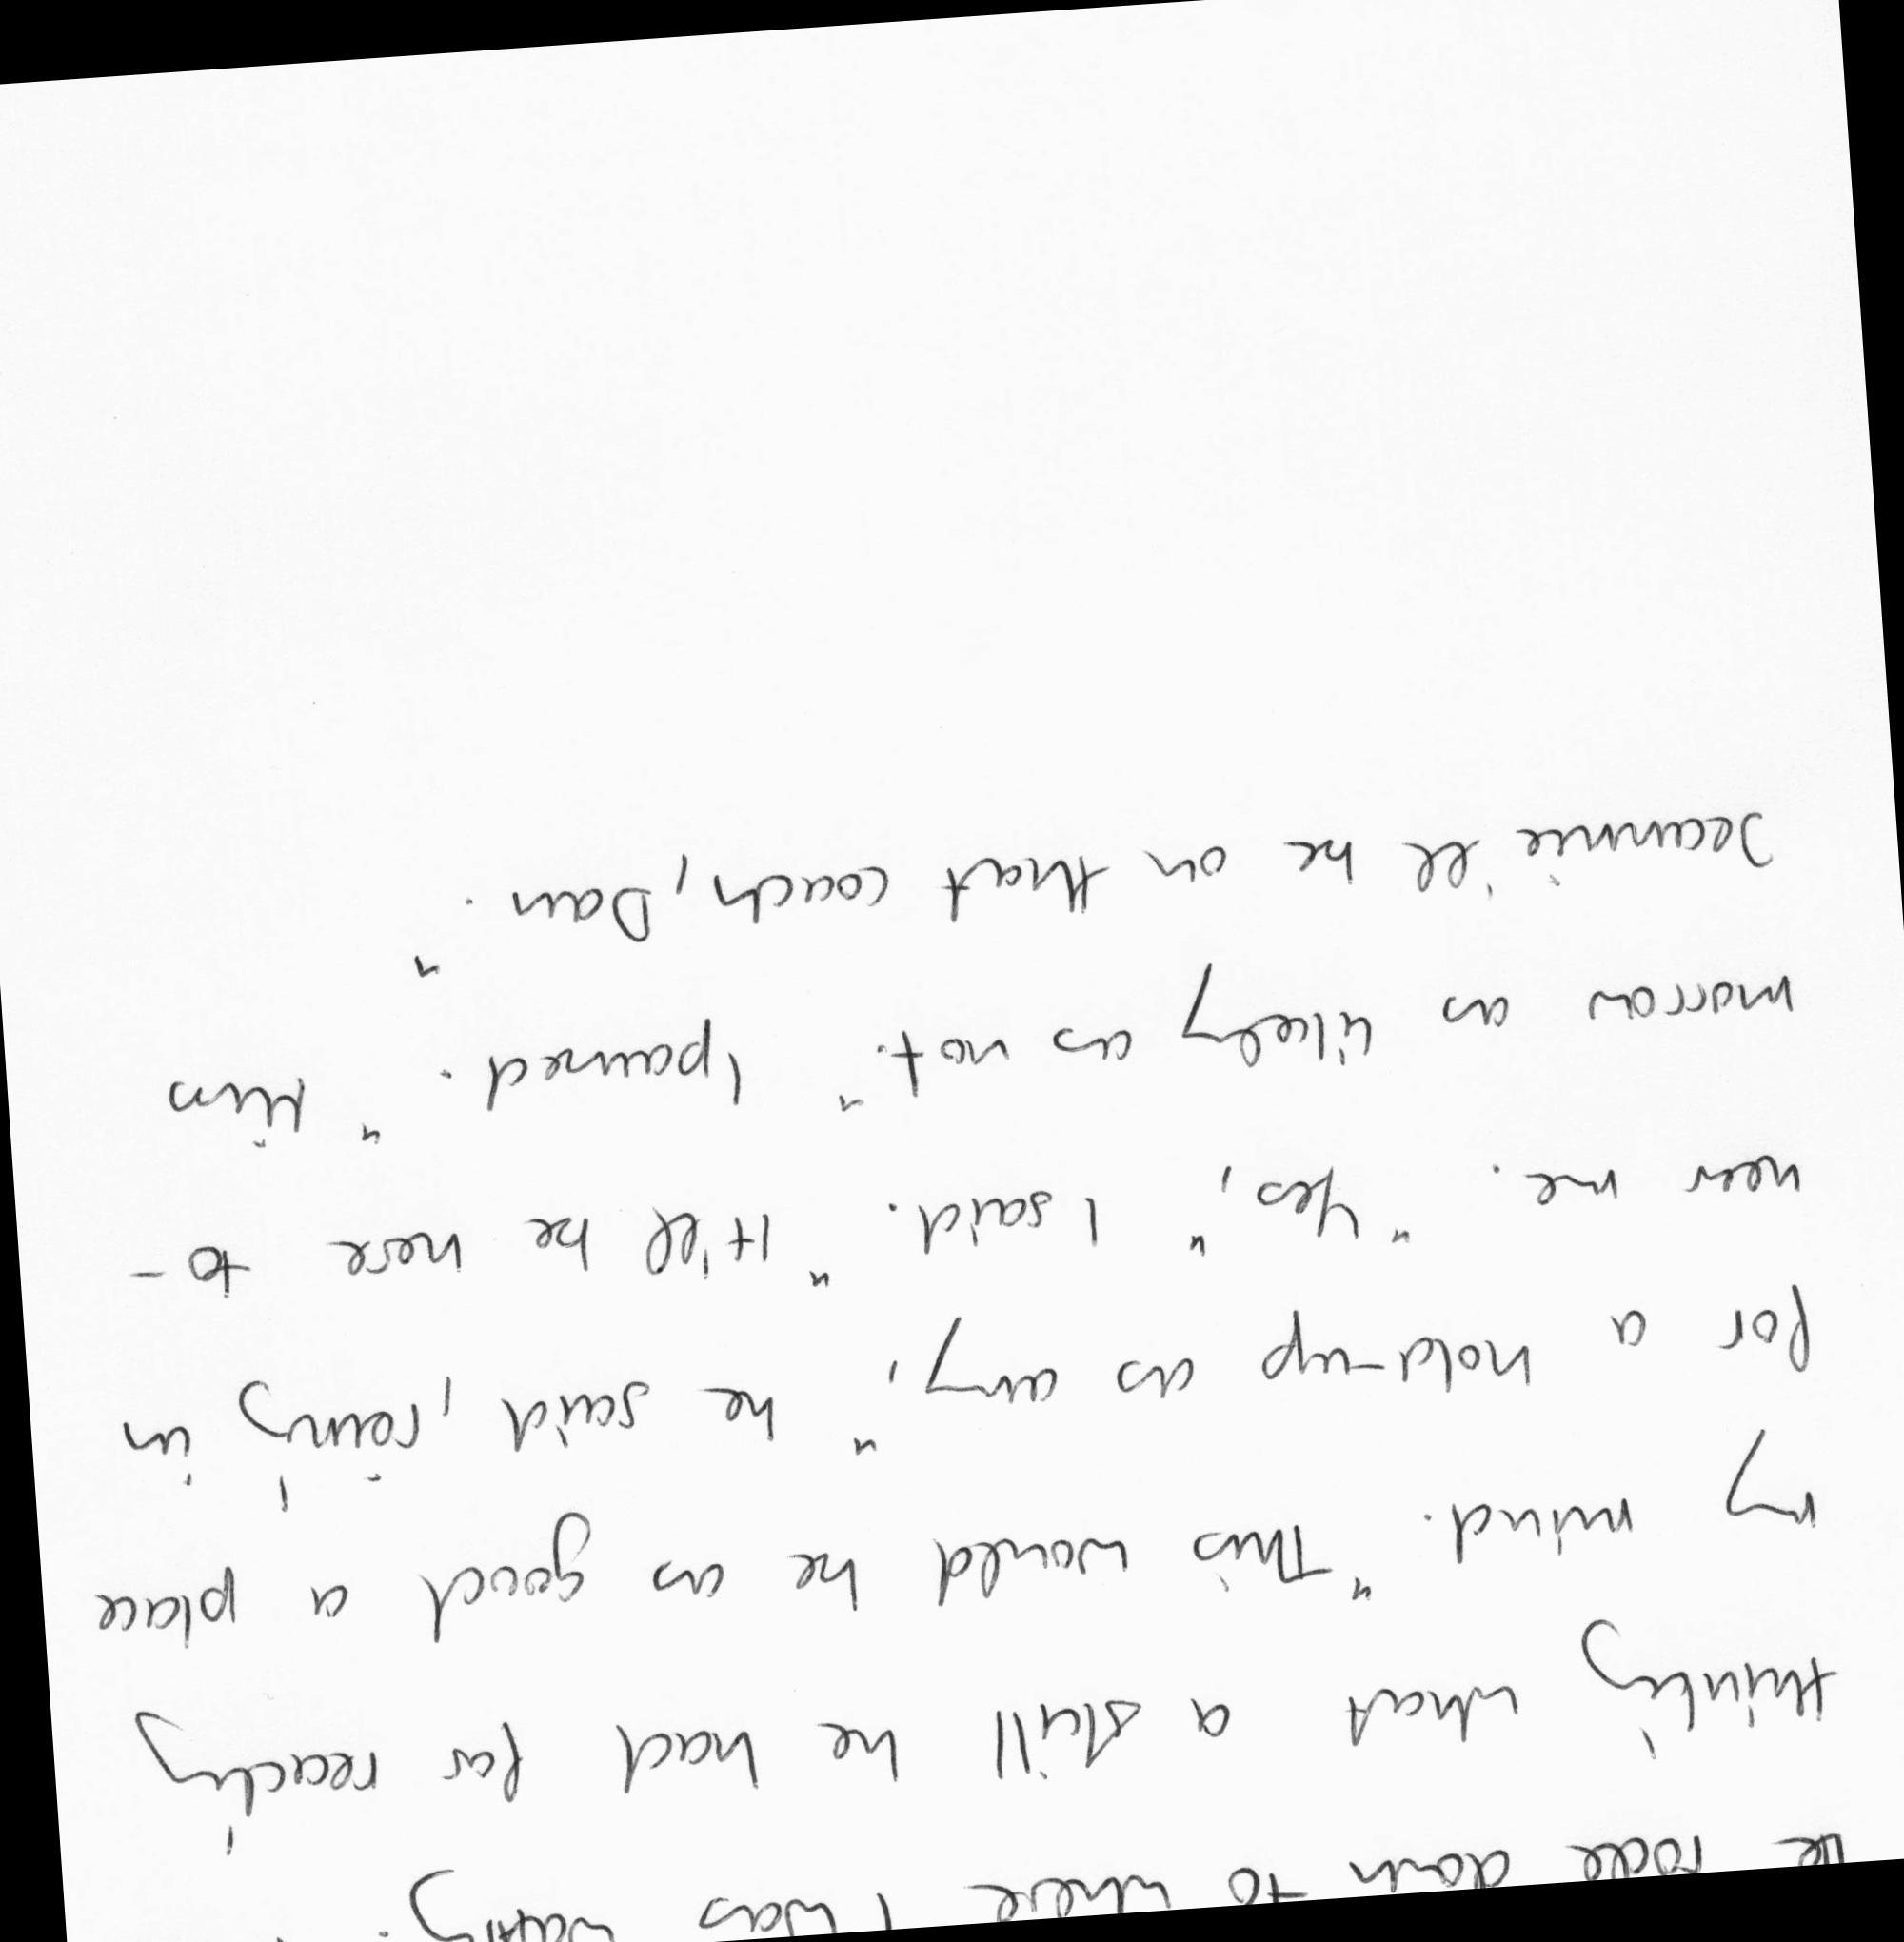 he rode down to where I was waiting.
thinking what a skill he had for reading
my mind. "This would be as good a place
for a hold-up as any," he said, reining in
near me. "Yes," I said. "It'll be here to-
morrow as likely as not." I paused. "Kim
Jeannie'll be on that coach, Dan."